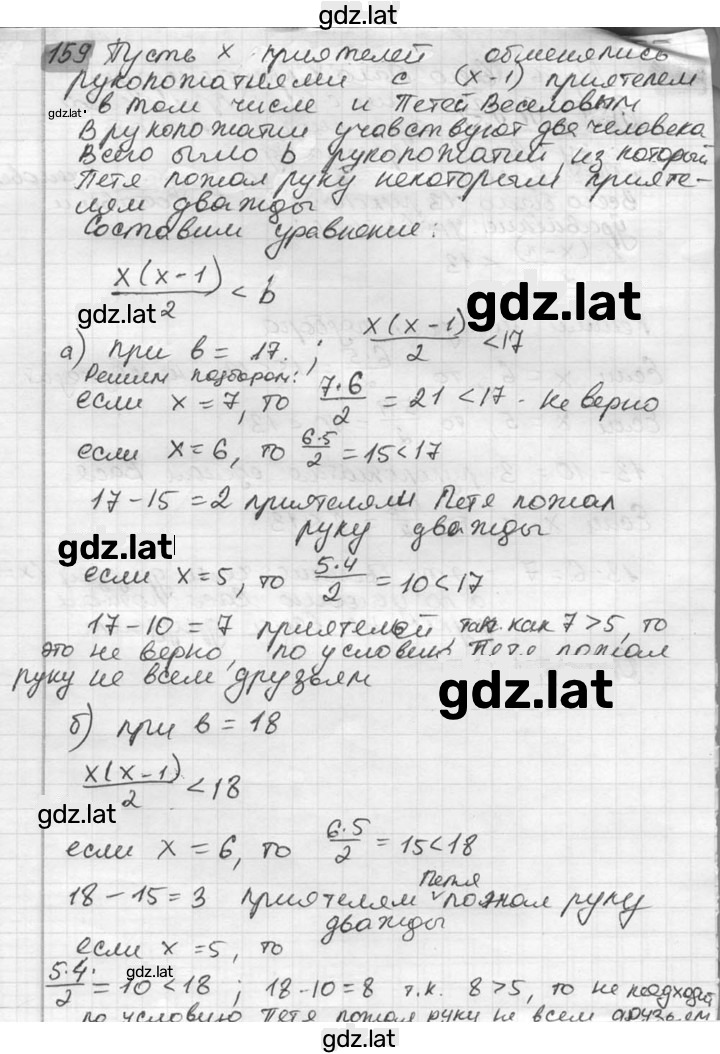 gdz.lat
159 Пусть x приятелей обменялись
рукопожатиями с (x-1) приятелем
gdz.lat в том числе и Петей Веселовым
В рукопожатии учавствуют две человека
Всего было b рукопожатий, из который
Петя пожал руку некоторым прияте-
лем дважды
Составим уравнение:
x(x-1)/2 < b
gdz.lat
gdz.lat
а) при b = 17. ; x(x-1)/2 < 17
Решим подбором:
если x = 7, то 7·6/2 = 21 < 17 - не верно
если x = 6, то 6·5/2 = 15 < 17
17 - 15 = 2 приятелям Петя пожал
руку дважды
gdz.lat
если x = 5, то 5·4/2 = 10 < 17
17 - 10 = 7 приятелей так как 7 > 5, то
это не верно, по условию Петя пожал
руку не всем друзьям
gdz.lat
б) при b = 18
x(x-1)/2 < 18
gdz.lat
если x = 6, то 6·5/2 = 15 < 18
18 - 15 = 3 приятелям Петя пожал руку
дважды
если x = 5, то
gdz.lat
5·4/2 = 10 < 18 ; 18 - 10 = 8 т.к. 8 > 5, то не подходит
по условию Петя пожал руки не всем друзьям
gdz.lat